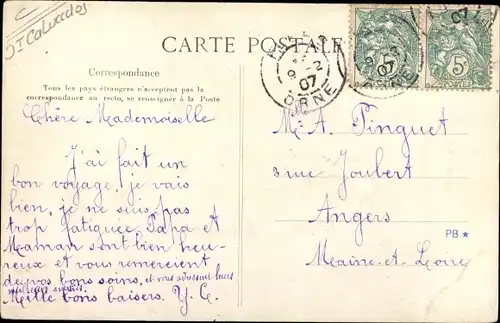 Calvados
CARTE POSTALE
Correspondance
Tous les pays étrangers n'acceptent pas la
correspondance au recto, se renseigner à la Poste
Chère Mademoiselle
J'ai fait un
bon voyage, je vais
bien, je ne suis pas
trop fatiguée Papa et
Maman sont bien heu-
reux et vous remercient
de vos bons soins, et vous adressent leurs
meilleures amitiés.
Mille bons baisers. Y. C.
9 - 2
07
ORNE
07
ORNE
07
5c
POSTES
M. A. Pinguet
3 rue Joubert
Angers
Maine-et-Loire
PB *